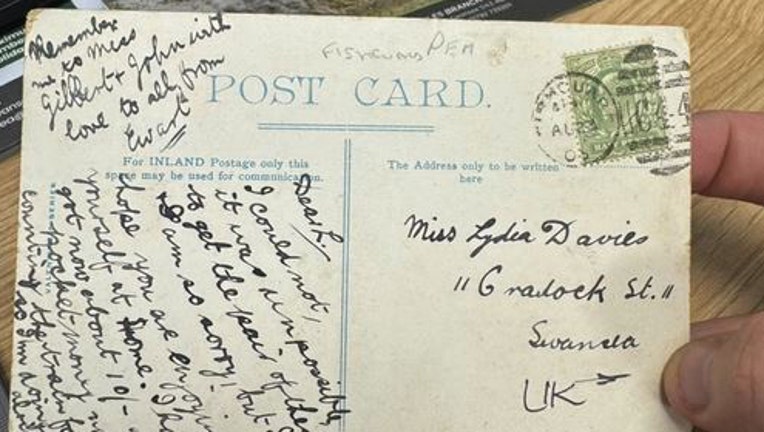 Remember
me to Miss
Gilbert & John with
love to all from
Ewart
FISHGUARD PEM
POST CARD.
For INLAND Postage only this
space may be used for communication.
The Address only to be written
here
FISHGUARD
AU
Dear L,
I could not,
it was impossible
to get the pair of
I am so sorry! but
hope you are
yourself at home. I
got now about 10/-
pocket-money
counting the train
as I'm doing
Miss Lydia Davies
"Cradock St."
Swansea
UK